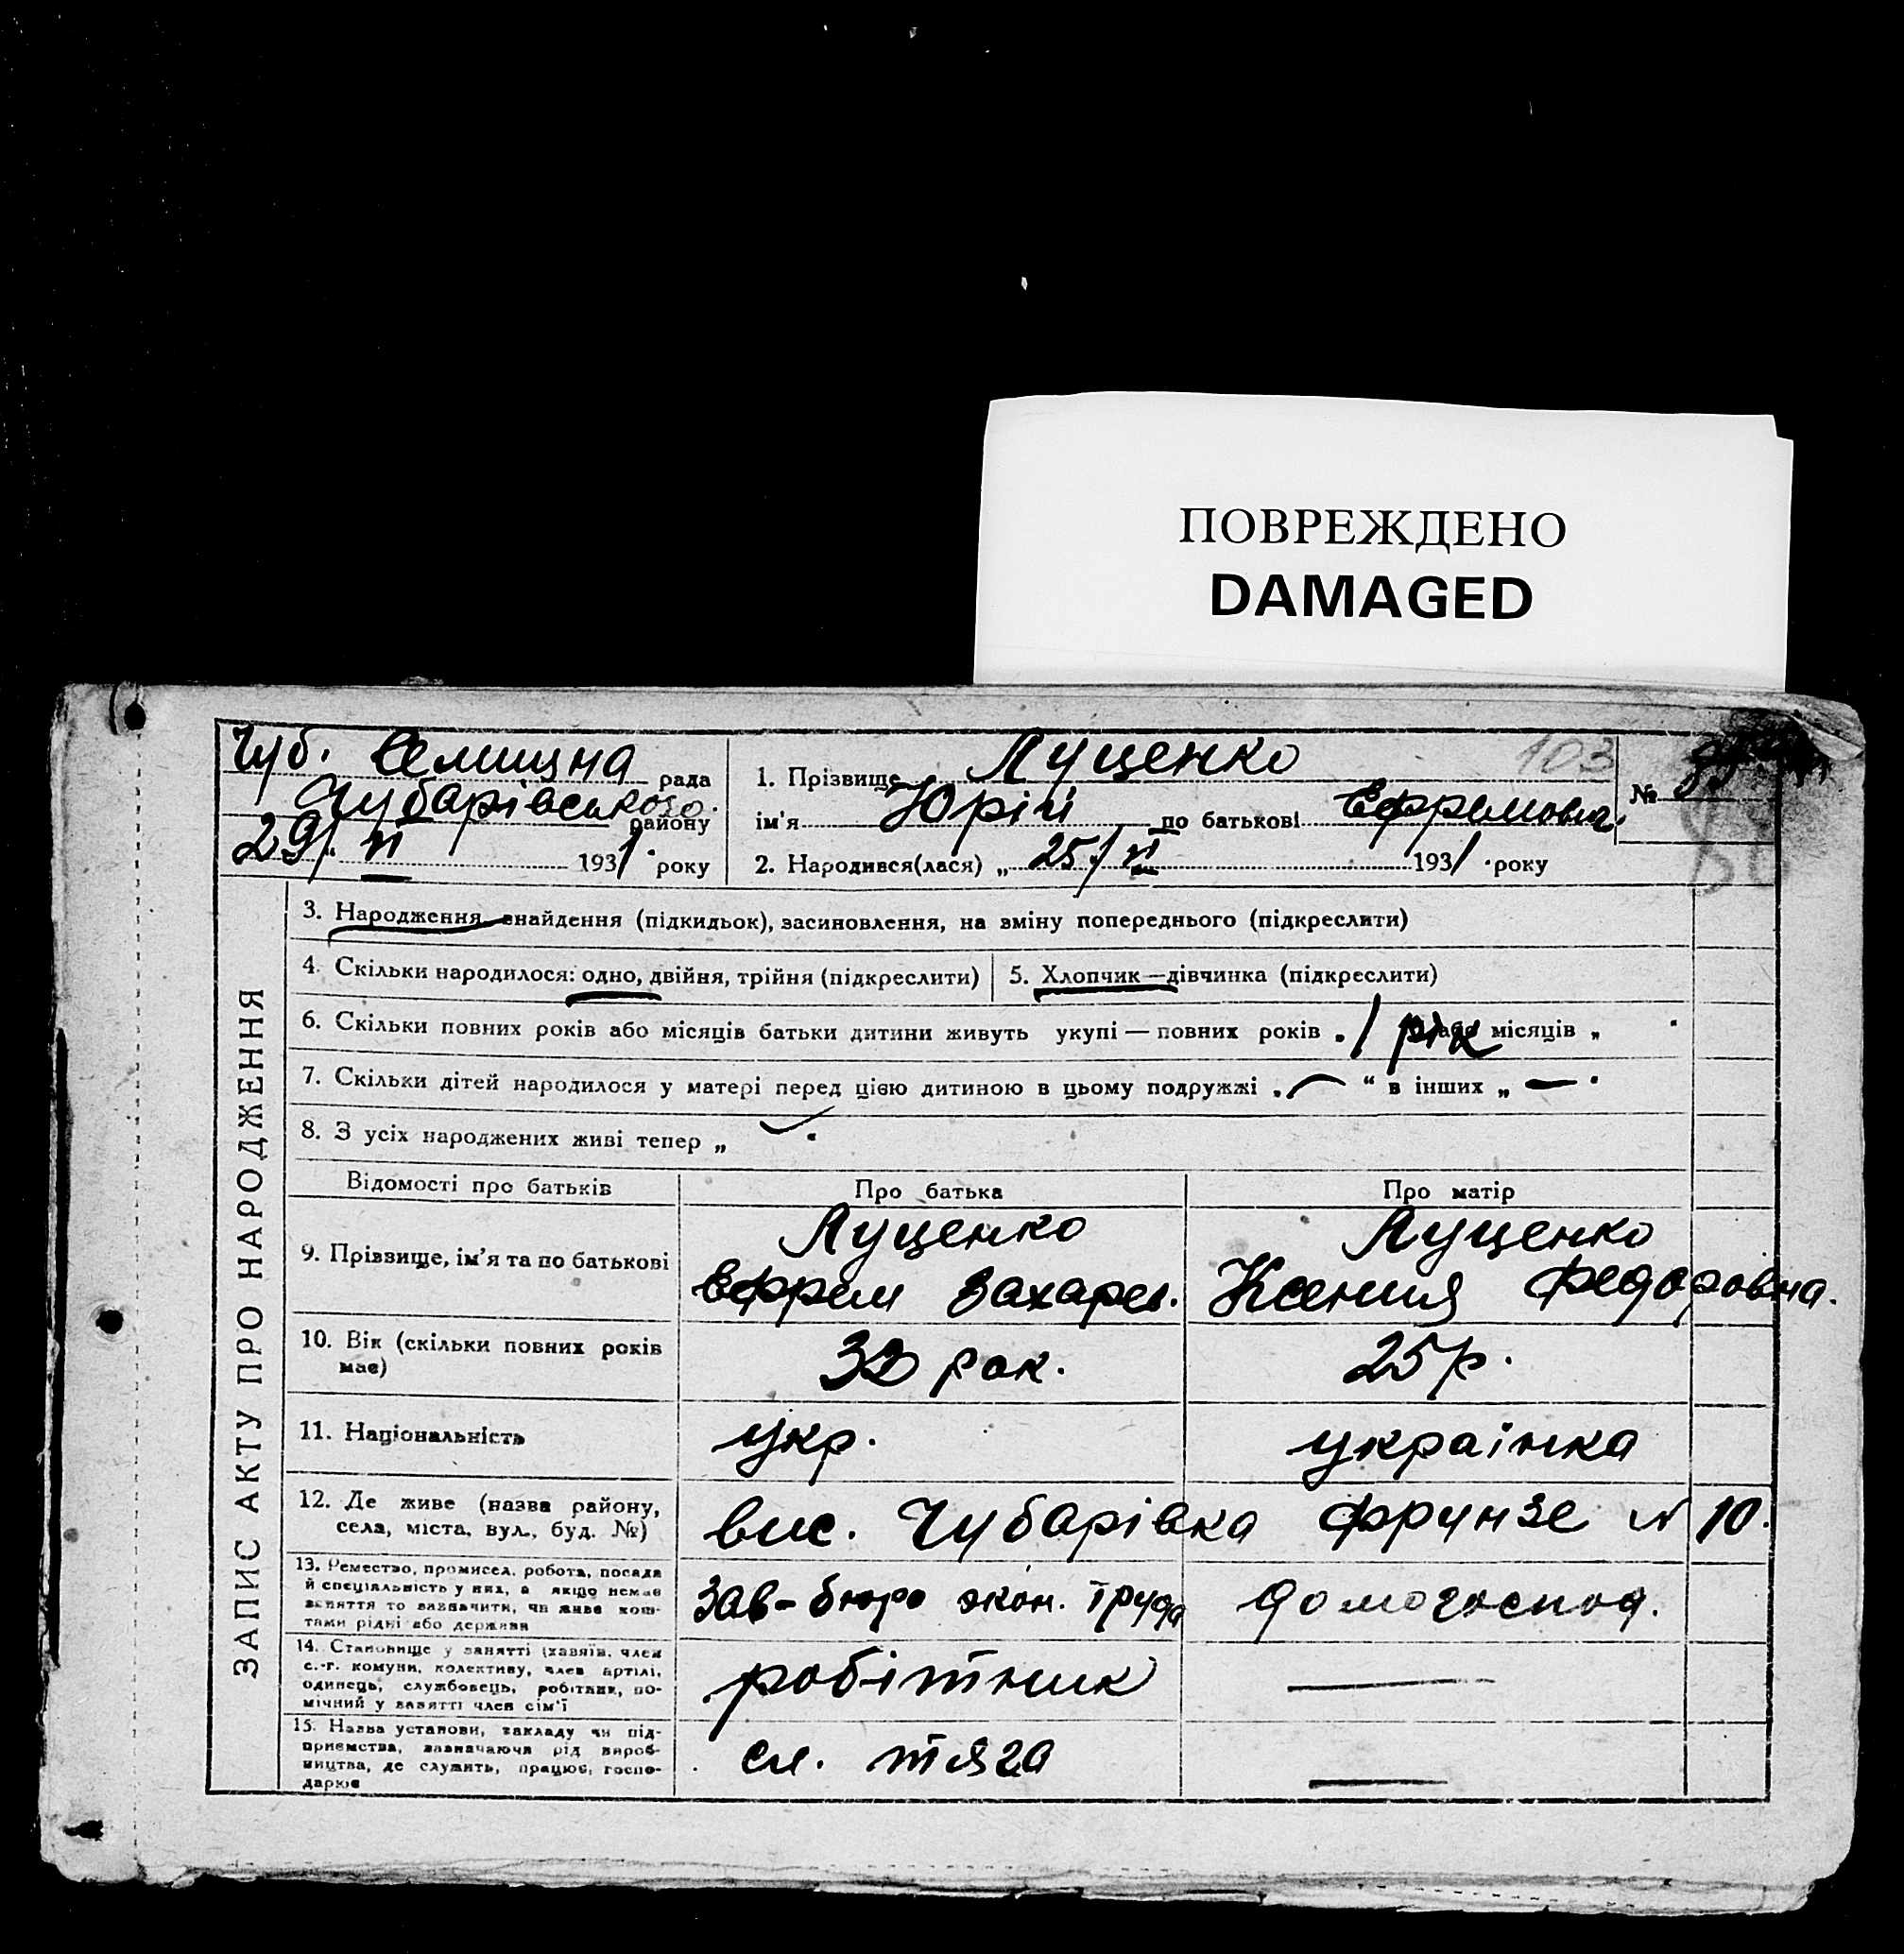 ПОВРЕЖДЕНО
DAMAGED
Чуб. Селищна рада
Чубарівського району
29/VI 1931 року
1. Прізвище Луценко 103
ім'я Юрій по батькові Ефремович
2. Народився(лася) „ 25/VI 1931 року
№
ЗАПИС АКТУ ПРО НАРОДЖЕННЯ
3. Народження, знайдення (підкидьок), засиновлення, на зміну попереднього (підкреслити)
4. Скільки народилося: одно, двійня, трійня (підкреслити)
5. Хлопчик—дівчинка (підкреслити)
6. Скільки повних років або місяців батьки дитини живуть укупі — повних років „ 1 рік або місяців „
7. Скільки дітей народилося у матері перед цією дитиною в цьому подружжі „ — “ в інших „ — “
8. З усіх народжених живі тепер „
Відомості про батьків Про батька Про матір
9. Прізвище, ім'я та по батькові
Луценко
Ефрем Захаров.
Луценко
Ксения Федоровна.
10. Вік (скільки повних років
має)
32 рок.
25 р.
11. Національність укр. українка
12. Де живе (назва району,
села, міста, вул., буд. №)
вис. Чубарівка Фрунзе № 10.
13. Ремество, промисел, робота, посада
й спеціальність у них, а якщо немає
заняття то зазначити, чи живе кош-
тами рідні або держави
Зав-бюро экон. труда
домогоспод.
14. Становище у занятті (хазяїн, член
с.-г. комуни, колективу, член артілі,
одинець, службовець, робітник, по-
мічний у занятті член сім'ї
робітник
—
15. Назва установи, закладу чи під-
приємства, зазначаючи рід вироб-
ництва, де служить, працює, госпо-
дарює
сл. тяга
—